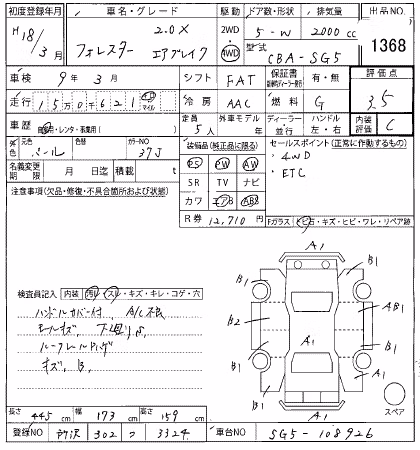 初度登録年月 車名・グレード 駆動 ドア数・形状 排気量 出品NO.
H18/3月 フォレスター 2.0X エアブレイク 2WD 4WD 5-W 2000cc 1368
型式 CBA-SG5
車検 9年 3月 シフト FAT 保証書 有・無 評価点 3.5
走行 150621 マイル 冷房 AAC 燃料 G
車歴 自家用・レンタ・ 定員 5人 外車モデル 年 ディーラー 並行 ハンドル 左・右 内装評価 C
外色 元色 パール 色替 カラーNO 37J
装備品(純正品に限る) セールスポイント(正常に作動するもの)
PS PW AW ・4WD
SR TV ナビ ・ETC
カワ エアB ABS
名義変更期限 月 日迄 積載 t
R券 12,710円
注意事項(欠品・修復・不具合箇所および状態)
Fガラス ヒビ石・キズ・ヒビ・ワレ・リペア跡
検査員記入 内装 汚レ・スレ・キズ・キレ・コゲ・穴
ハンドルカバー付 A/C
キズ 下廻りS
ルーフレール
キズ、B、
A1
B1 B1
A1
B2 AB1
A1
B1 B1
A1
B1 A1 スペア
長さ 445cm 幅 173cm 高さ 159cm
登録NO 所沢 302 フ 3324 車台NO SG5-108926